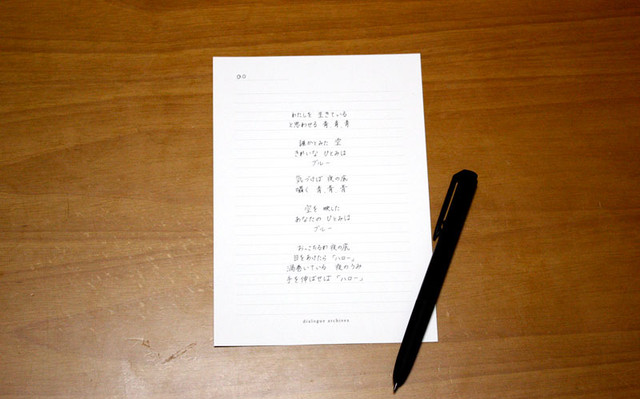 わたしを 生きている
と思わせる 青、青、青
誰かとみた 空
きれいな ひとみは
ブルー
気づけば 夜の底
囁く 青、青、青
空を 映した
あなたの ひとみは
ブルー
おっこちるわ 夜の底
目をあけたら 「ハロー」
渦巻いている 夜のうみ
手を伸ばせば 「ハロー」
dialogue archives